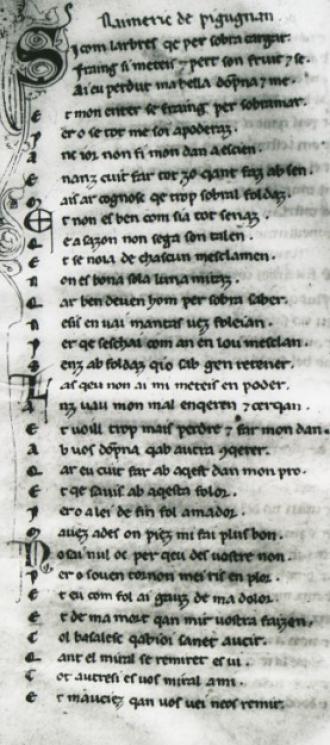 Naimeric de pigugnan
Si com larbres qe per sobra cargar.
Fraing si meteis ⁊ pert son fruit ⁊ se.
Ai eu perdut ma bella dōpna ⁊ me.
E t mon enter se fraing per sobramar.
P ero se tot me soi apoderaz.
A nc ior non fi mon dan a escien.
E nanz cuit far tot zo qant faz ab sen.
M ais ar cognosc qe trop sobral foldaz.
E t non es ben com sia tot senaz.
Q e a sazon non sega son talen.
E t se noia de chascun mesclamen.
N on es bona sola luna mitaz.
Q ar ben deuen hom per sobra saber.
N esis en uai mantas uez foleian.
P er qe seschai com an en lou mesclan.
S enz ab foldaz qio sab gen retener.
L as qeu non ai mi meteis en poder.
A nz uau mon mal enqeren ⁊ cerqan.
E t uoill trop mais perdre ⁊ far mon dan.
A b uos dōpna qab autra ꝯqerer.
Q ar eu cuit far ab aqest dan mon pro.
E t qe sauis ab aqesta folor.
P ero a lei de fin fol amador.
M auez ades on piez mi fai plus bon.
N o sai nul oc per qeu des uostre non.
P ero souen tornon mei ris en plor.
E t eu com fol ai gauz de ma dolor.
E t de ma mort qan mir uostra faizon.
C ol basalesc qab ioi sanet aucir.
Q ant el miral se remiret es ui.
T ot autresi es uos miral a mi.
E t mauciez qan uos uei ne os remir.